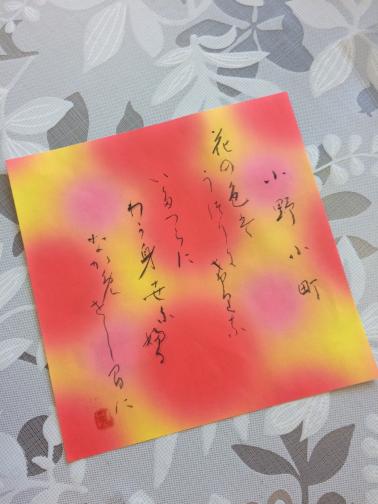 小野小町
花の色は
うつりにけりな
いたつらに
わか身世にふる
なか免せし間に